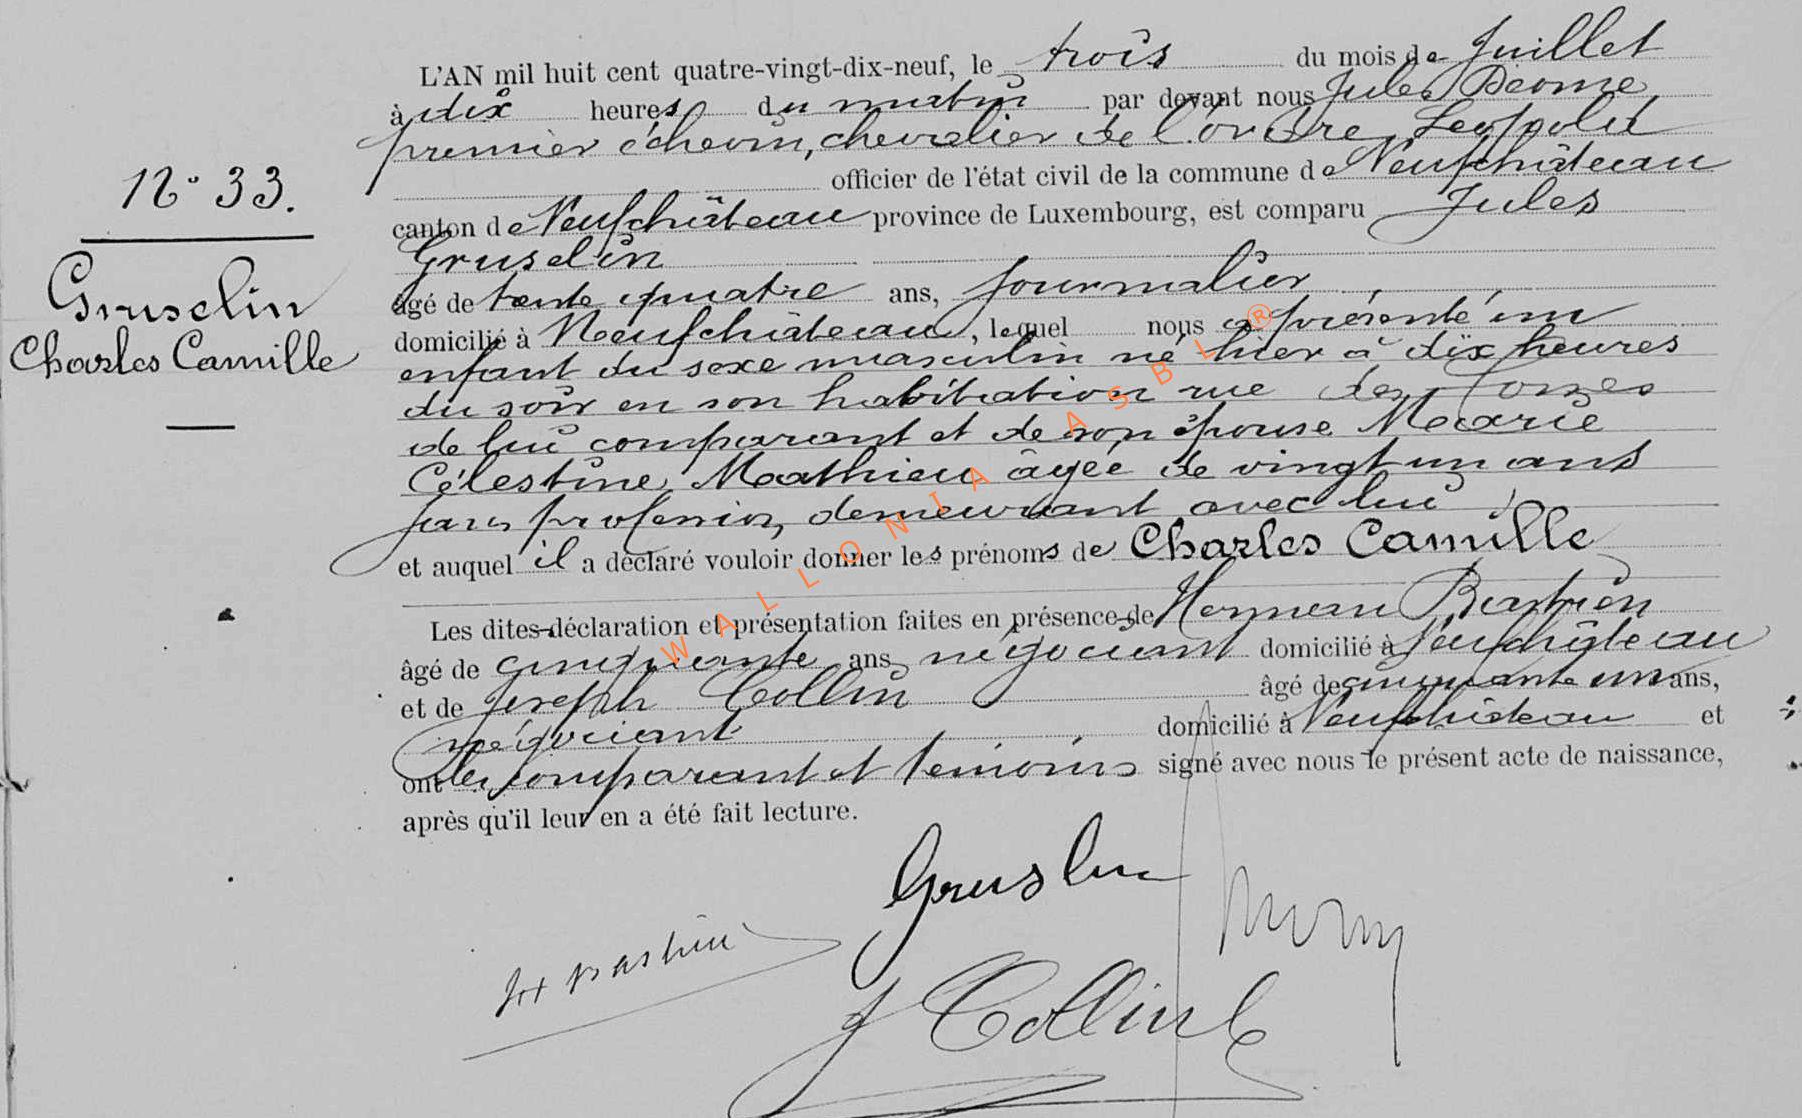 L'AN mil huit cent quatre-vingt-dix-neuf, le trois du mois de Juillet
à dix heures du matin par devant nous Jules
premier échevin, chevalier de l'ordre Léopold
officier de l'état civil de la commune de Neufchâteau
N° 33.
canton de Neufchâteau province de Luxembourg, est comparu Jules
Gruselin
Gruselin
Charles Camille
âgé de trente quatre ans, journalier
domicilié à Neufchâteau, lequel nous a présenté un
enfant du sexe masculin né hier à dix heures
du soir en son habitation rue des
de lui comparant et de son épouse Marie
Célestine Mathieu âgée de vingt un ans
sans profession, demeurant avec lui
et auquel il a déclaré vouloir donner les prénoms de Charles Camille
Les dites déclaration et présentation faites en présence de Herman Bastien
âgé de cinquante ans, négociant domicilié à Neufchâteau
et de Joseph Collin âgé de cinquante un ans,
négociant domicilié à Neufchâteau et
ont les comparant et témoins signé avec nous le présent acte de naissance,
après qu'il leur en a été fait lecture.
Gruslin
Bastien
J Collin
WALLONIA ASBL ®